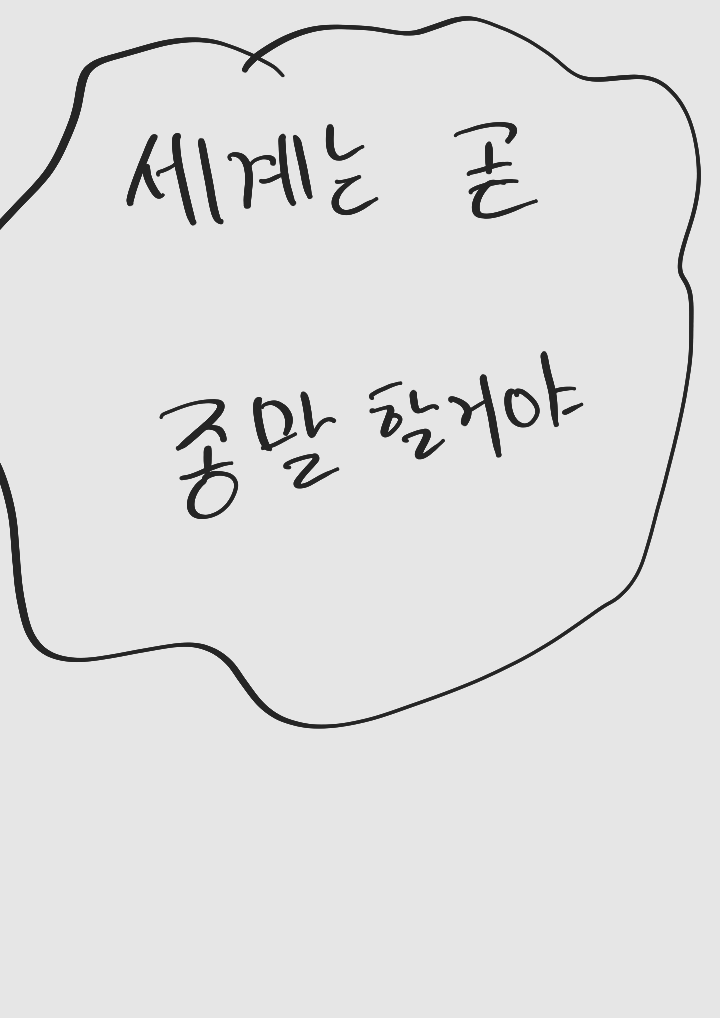 세계는 곧
종말 할거야